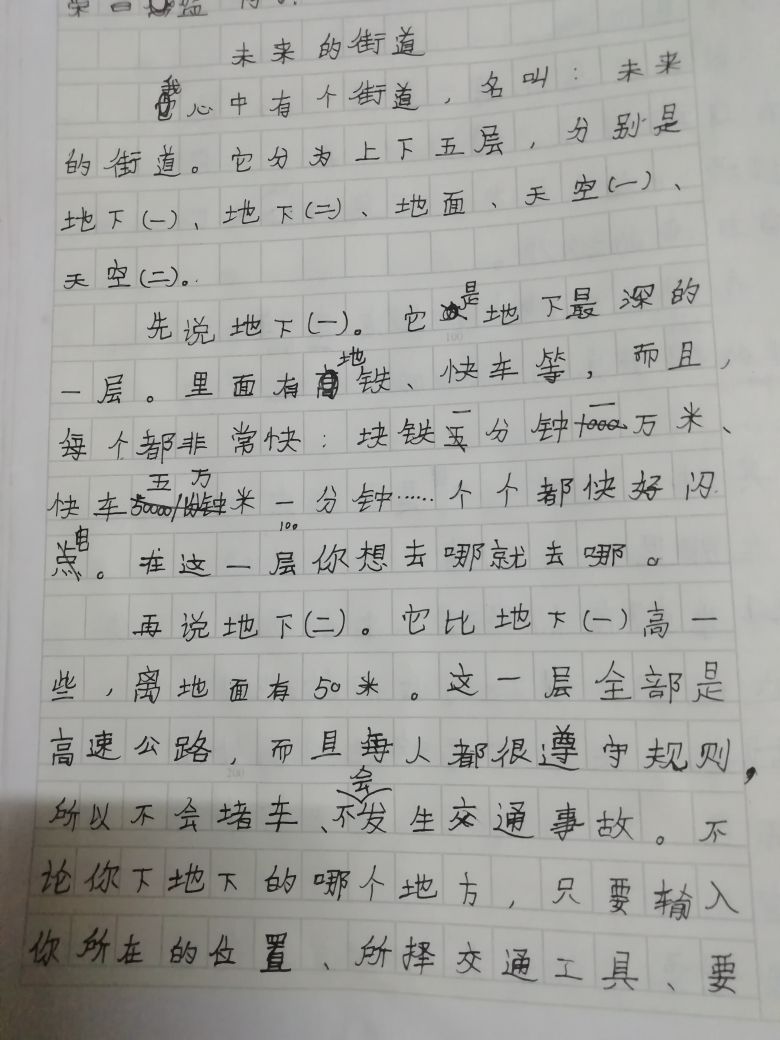 未来的街道
我心中有个街道，名叫：未来
的街道。它分为上下五层，分别是
地下(一)、地下(二)、地面、天空(一)、
天空(二)。
先说地下(一)。它是地下最深的
一层。里面有地铁、快车等，而且，
每个都非常快：块铁一分钟一万米、
快车五万米一分钟……个个都快好闪
电。在这一层你想去哪就去哪。
100
再说地下(二)。它比地下(一)高一
些，离地面有50米。这一层全部是
高速公路，而且每人都很遵守规则，
200
所以不会堵车、不会发生交通事故。不
论你下地下的哪个地方，只要输入
你所在的位置、所择交通工具、要